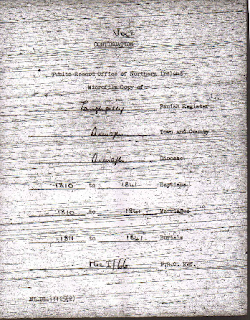 CONTINUATION
Public Record Office of Northern Ireland
Microfilm Copy of
Parish Register
Armagh Town and County
Armagh Diocese
1810 to 1841 Baptisms
1810 to 1841 Marriages
1811 to 1841 Burials
Mic 1/66 P.R.O. Ref.